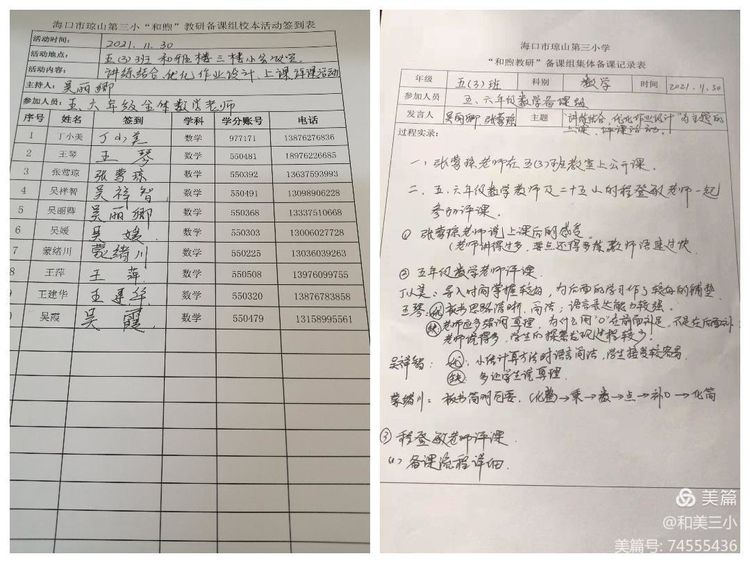 海口市琼山第三小“和煦”教研备课组校本活动签到表
活动时间: 2021.11.30
活动地点: 五(3)班 和雅楼三楼小会议室
活动内容: 讲练结合,优化作业设计 上课 评课活动
主持人: 吴丽卿
参加人员: 五、六年级全体数学老师
序号 姓名 签到 学科 学分账号 电话
1 丁小美 丁小美 数学 977171 13876276836
2 王琴 王琴 数学 550481 18976226685
3 张莺琼 张莺琼 数学 550392 13637593993
4 吴祥智 吴祥智 数学 550491 13098906228
5 吴丽卿 吴丽卿 数学 550368 13337510668
6 吴媛 吴媛 数学 550303 13006027728
7 蒙绪川 蒙绪川 数学 550225 13036039263
8 王萍 王萍 数学 550508 13976099755
王建华 王建华 数学 550320 13876783858
吴霞 吴霞 数学 550479 13158995561
海口市琼山第三小学
“和煦教研”备课组集体备课记录表
年级 五(3)班 科别 数学 时间 2021.11.30
参加人员 五、六年级数学备课组
发言人 吴丽卿 张莺琼 主题 “讲练结合,优化作业设计”为主题的上课、评课活动
过程实录:
一、张莺琼老师在五(3)班教室上公开课.
二、五.六年级数学教师及二十五小的程登敏老师一起
参加评课.
① 张莺琼老师说上课后的感觉
(老师讲得过多,重点还得多读 教师语速过快.
② 五年级数学老师评课.
丁小美: 导入时间掌握较好,为后面的学习作了较好的铺垫
王琴: 优 板书思路清晰,简洁;语言表达能力较强.
缺 老师应多强调算理,为什么用“0”在前面补足,不是在后面补
老师说得多,学生的探索发现过程较少!
吴祥智: 优、小结计算方法时语言简洁,学生接受较容易
缺 多让学生说算理
蒙绪川: 板书简明扼要,化→乘→数→点→补0→化简
③ 程登敏老师评课.
(1) 备课流程详细.
美篇
@和美三小
美篇号: 74555436